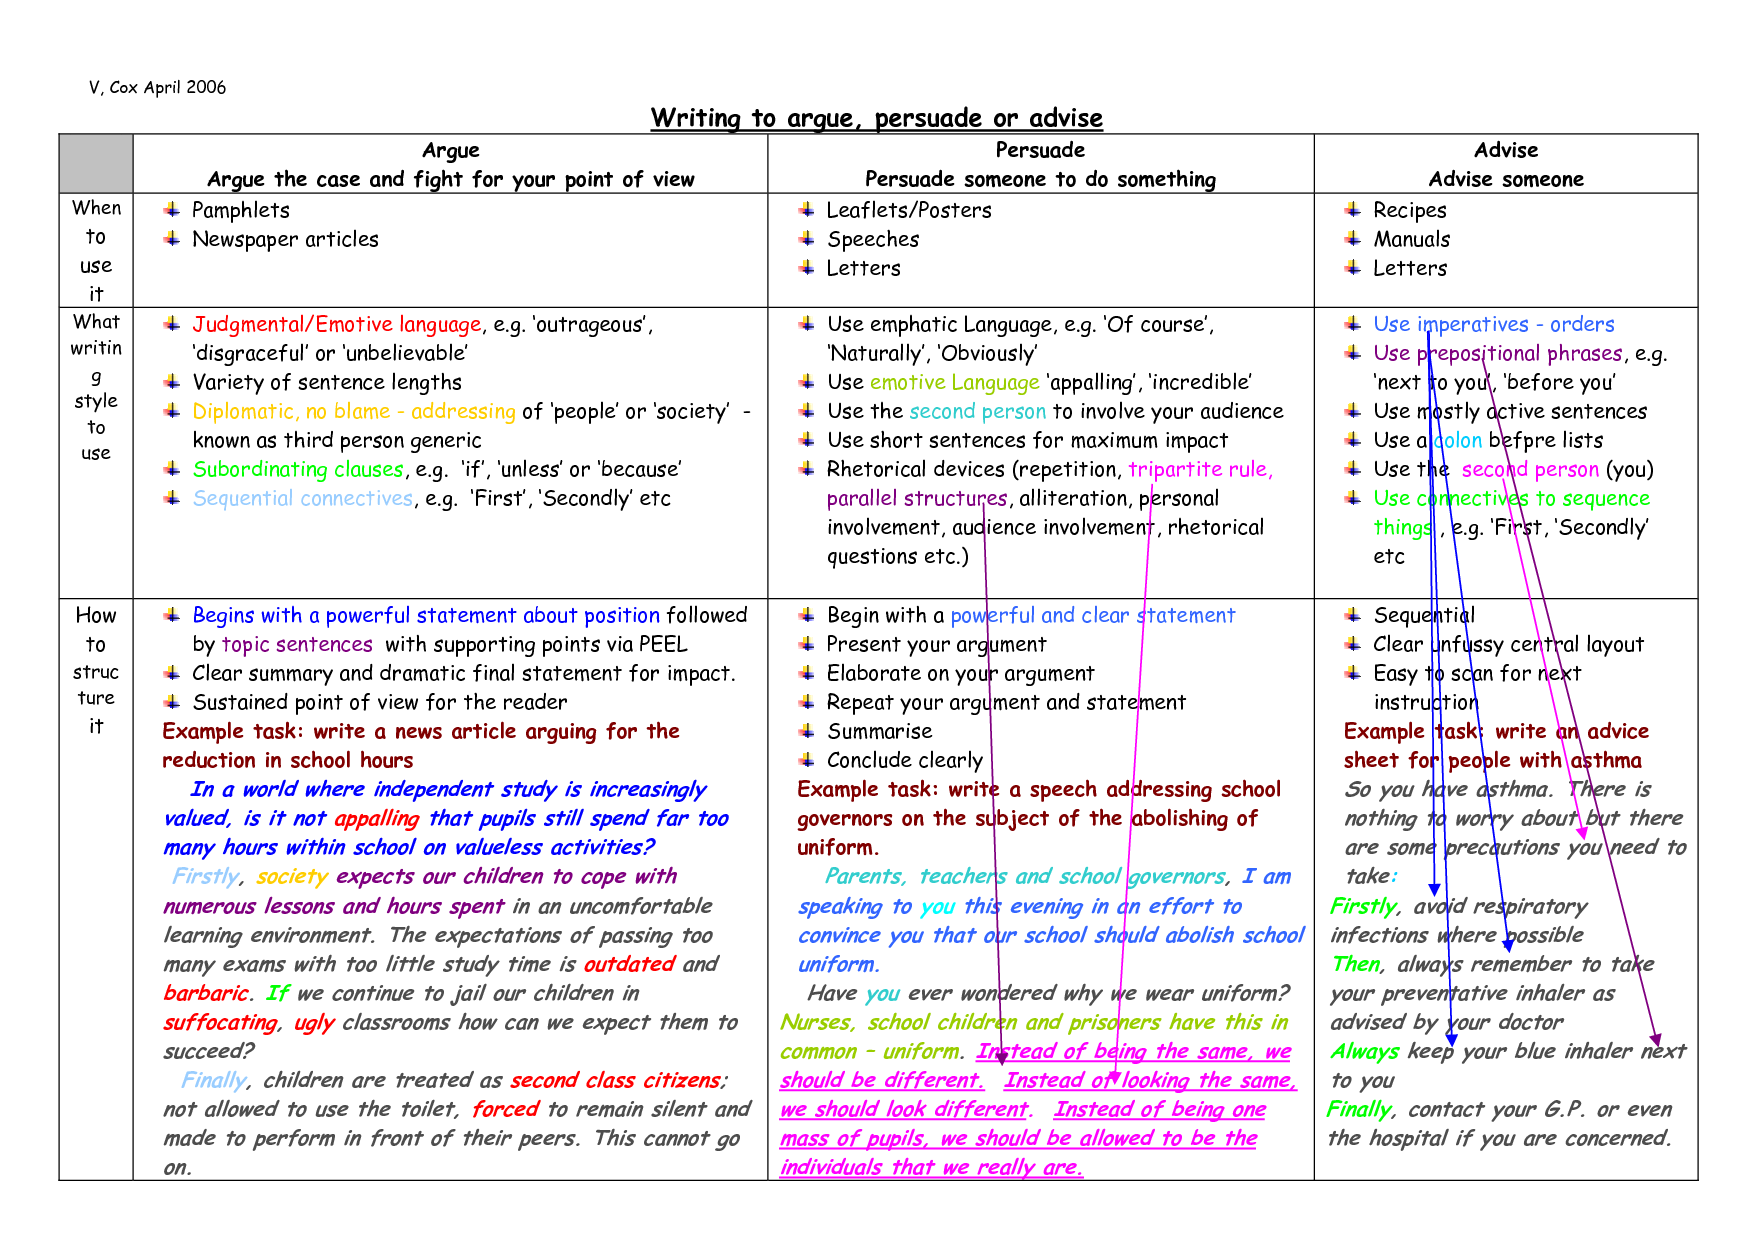 V, Cox April 2006
Writing to argue, persuade or advise
Argue
Argue the case and fight for your point of view
Persuade
Persuade someone to do something
Advise
Advise someone
When
to
use
it
Pamphlets
Newspaper articles
Leaflets/Posters
Speeches
Letters
Recipes
Manuals
Letters
What
writin
g
style
to
use
Judgmental/Emotive language, e.g. ‘outrageous’,
‘disgraceful’ or ‘unbelievable’
Variety of sentence lengths
Diplomatic, no blame - addressing of ‘people’ or ‘society’ -
known as third person generic
Subordinating clauses, e.g. ‘if’, ‘unless’ or ‘because’
Sequential connectives, e.g. ‘First’, ‘Secondly’ etc
Use emphatic Language, e.g. ‘Of course’,
‘Naturally’, ‘Obviously’
Use emotive Language ‘appalling’, ‘incredible’
Use the second person to involve your audience
Use short sentences for maximum impact
Rhetorical devices (repetition, tripartite rule,
parallel structures, alliteration, personal
involvement, audience involvement, rhetorical
questions etc.)
Use imperatives - orders
Use prepositional phrases, e.g.
‘next to you’, ‘before you’
Use mostly active sentences
Use a colon befpre lists
Use the second person (you)
Use connectives to sequence
things , e.g. ‘First, ‘Secondly’
etc
How
to
struc
ture
it
Begins with a powerful statement about position followed
by topic sentences with supporting points via PEEL
Clear summary and dramatic final statement for impact.
Sustained point of view for the reader
Example task: write a news article arguing for the
reduction in school hours
In a world where independent study is increasingly
valued, is it not appalling that pupils still spend far too
many hours within school on valueless activities?
Firstly, society expects our children to cope with
numerous lessons and hours spent in an uncomfortable
learning environment. The expectations of passing too
many exams with too little study time is outdated and
barbaric. If we continue to jail our children in
suffocating, ugly classrooms how can we expect them to
succeed?
Finally, children are treated as second class citizens;
not allowed to use the toilet, forced to remain silent and
made to perform in front of their peers. This cannot go
on.
Begin with a powerful and clear statement
Present your argument
Elaborate on your argument
Repeat your argument and statement
Summarise
Conclude clearly
Example task: write a speech addressing school
governors on the subject of the abolishing of
uniform.
Parents, teachers and school governors, I am
speaking to you this evening in an effort to
convince you that our school should abolish school
uniform.
Have you ever wondered why we wear uniform?
Nurses, school children and prisoners have this in
common – uniform. Instead of being the same, we
should be different. Instead of looking the same,
we should look different. Instead of being one
mass of pupils, we should be allowed to be the
individuals that we really are.
Sequential
Clear unfussy central layout
Easy to scan for next
instruction
Example task: write an advice
sheet for people with asthma
So you have asthma. There is
nothing to worry about but there
are some precautions you need to
take:
Firstly, avoid respiratory
infections where possible
Then, always remember to take
your preventative inhaler as
advised by your doctor
Always keep your blue inhaler next
to you
Finally, contact your G.P. or even
the hospital if you are concerned.